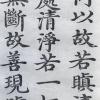 何以故若瞋清
處清淨若一切
無斷故善現